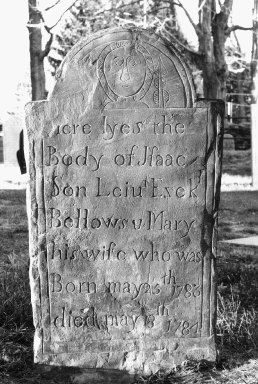 iere lyes the
Body of Isaac
Son Leiut Ezek
Bellows & Mary
his wife who was
Born may 25th 1783
died may 8th 1784